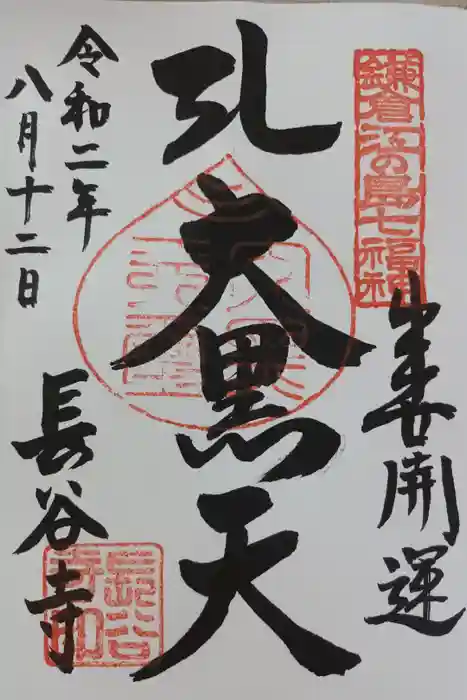 鎌倉江の島七福神
出世開運
大黒天
令和二年
八月十二日
長谷寺
長谷寺印